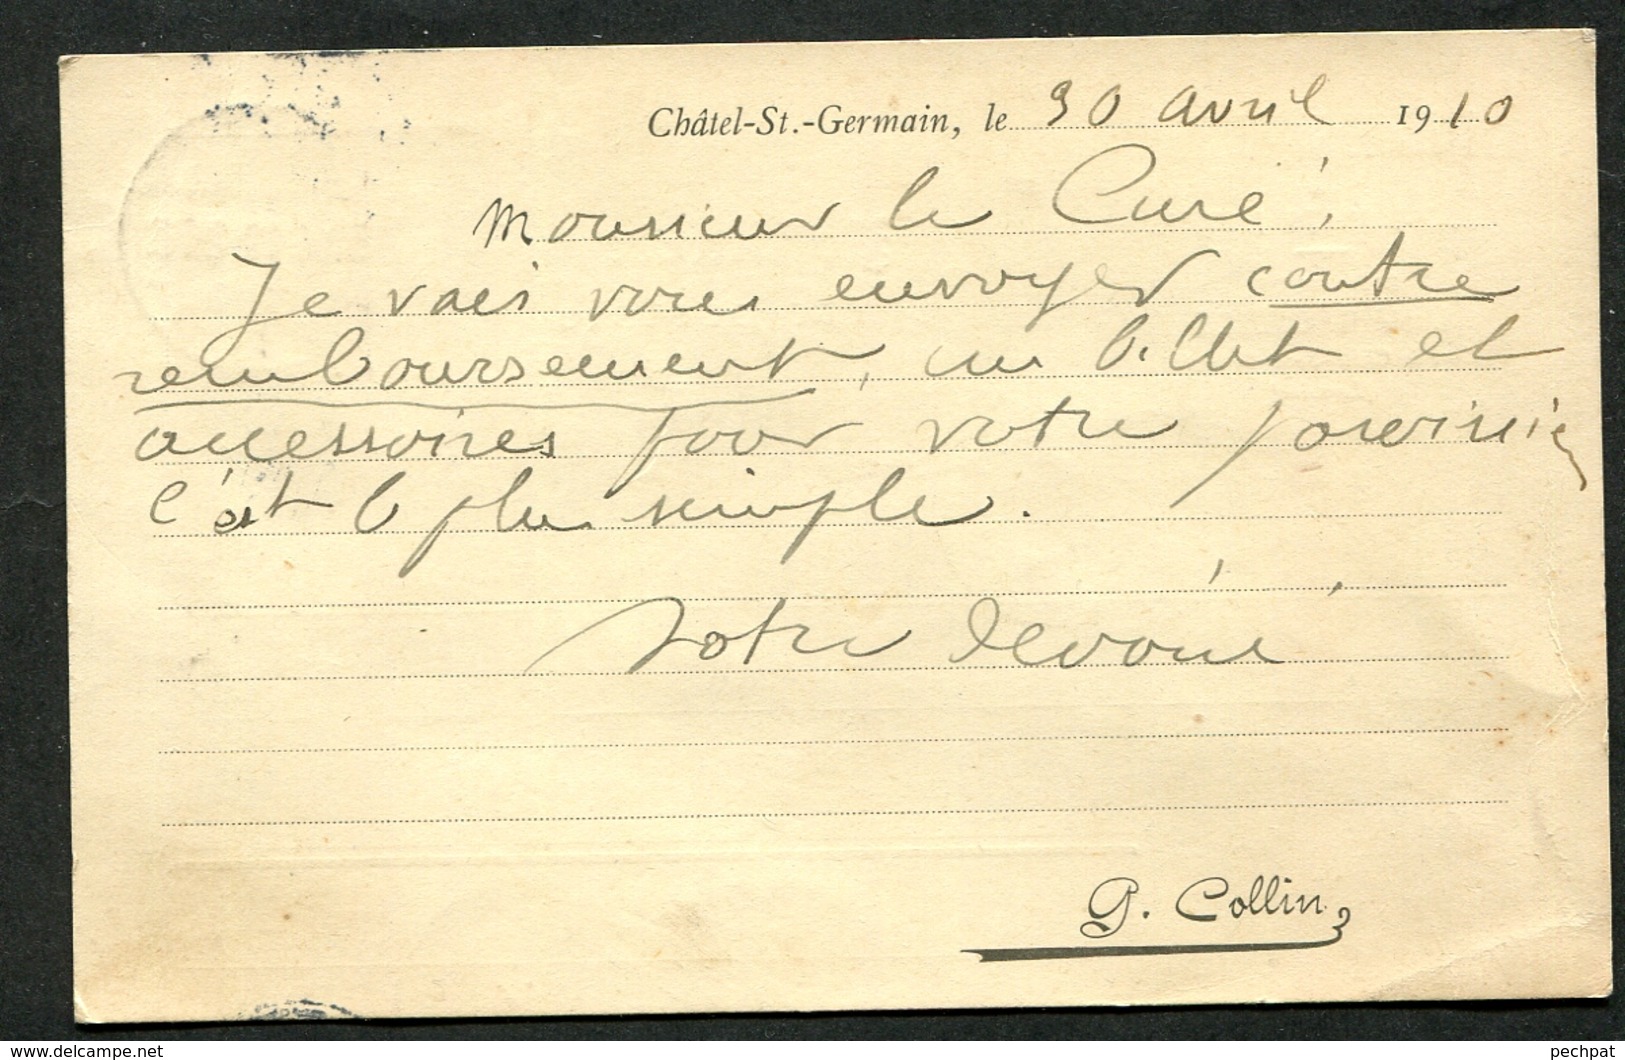 Châtel-St.-Germain, le 30 avril 1910
Monsieur le Curé,
Je vais vous envoyer contre
remboursement, un billet et
accessoires pour votre
c'est le plus simple.
Votre dévoué
G. Collin
pechpat